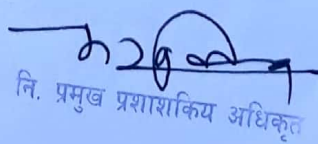 नि. प्रमुख प्रशाशकिय अधिकृत